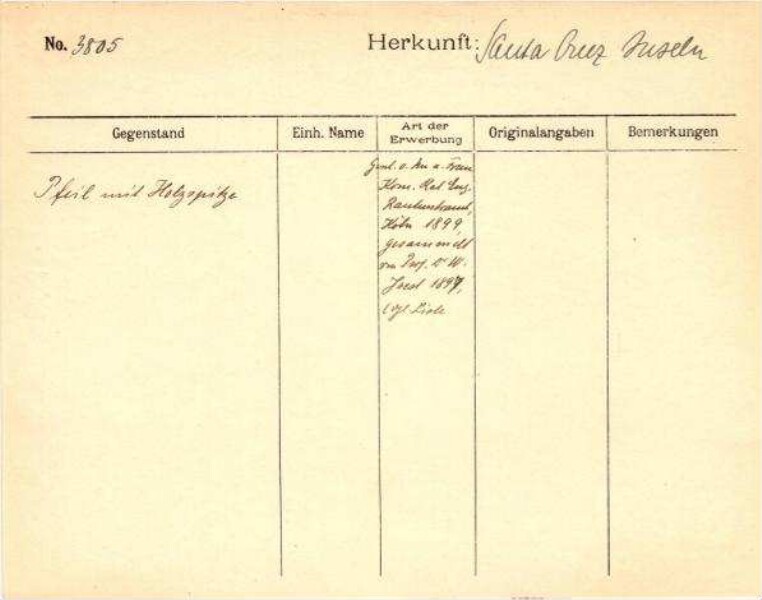 No. 3805
Herkunft: Santa Cruz Inseln
Gegenstand
Einh. Name
Art der
Erwerbung
Originalangaben
Bemerkungen
Pfeil mit Holzspitze
Gesch. v. Frau
Kom. Rat Eug.
Rautenstrauch,
Köln 1899,
gesammelt
von Prof. Dr W.
Joest 1897,
(vgl. Liste